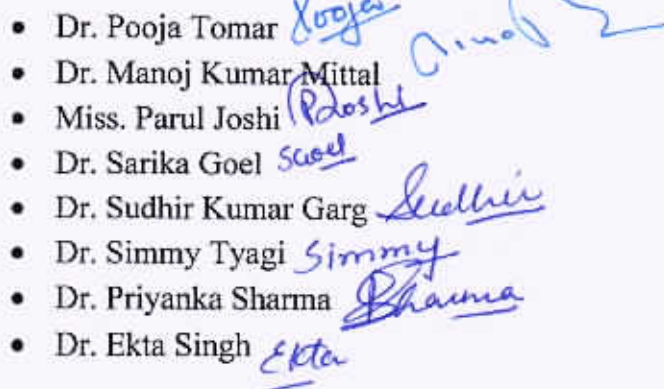 • Dr. Pooja Tomar Pooja
• Dr. Manoj Kumar Mittal
• Miss. Parul Joshi PJoshi
• Dr. Sarika Goel SGoel
• Dr. Sudhir Kumar Garg Sudhir
• Dr. Simmy Tyagi Simmy
• Dr. Priyanka Sharma Sharma
• Dr. Ekta Singh Ekta